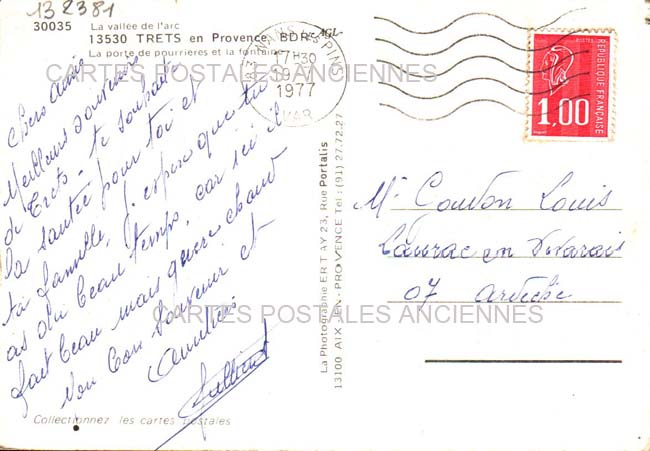 132381
30035 La vallée de l'arc
13530 TRETS en Provence BDR AGL
La porte de pourrières et la fontaine
17H30
19
1977
VAR
RÉPUBLIQUE FRANÇAISE
POSTES
1,00
CARTES POSTALES ANCIENNES
Chers Amis
Meilleurs souvenirs
de Trets - te souhaite
la santé pour toi et
ta famille, j'espère que tu
as du beau temps, car ici il
fait beau mais guère chaud
Mon bon souvenir et
Amitiés
La Photographie ERTAY 23, Rue Portalis
13100 AIX-EN-PROVENCE Tel: (91) 27.72.27
Mr Coudon Louis
Laurac en Vivarais
07 Ardèche
CARTES POSTALES ANCIENNES
Collectionnez les cartes postales